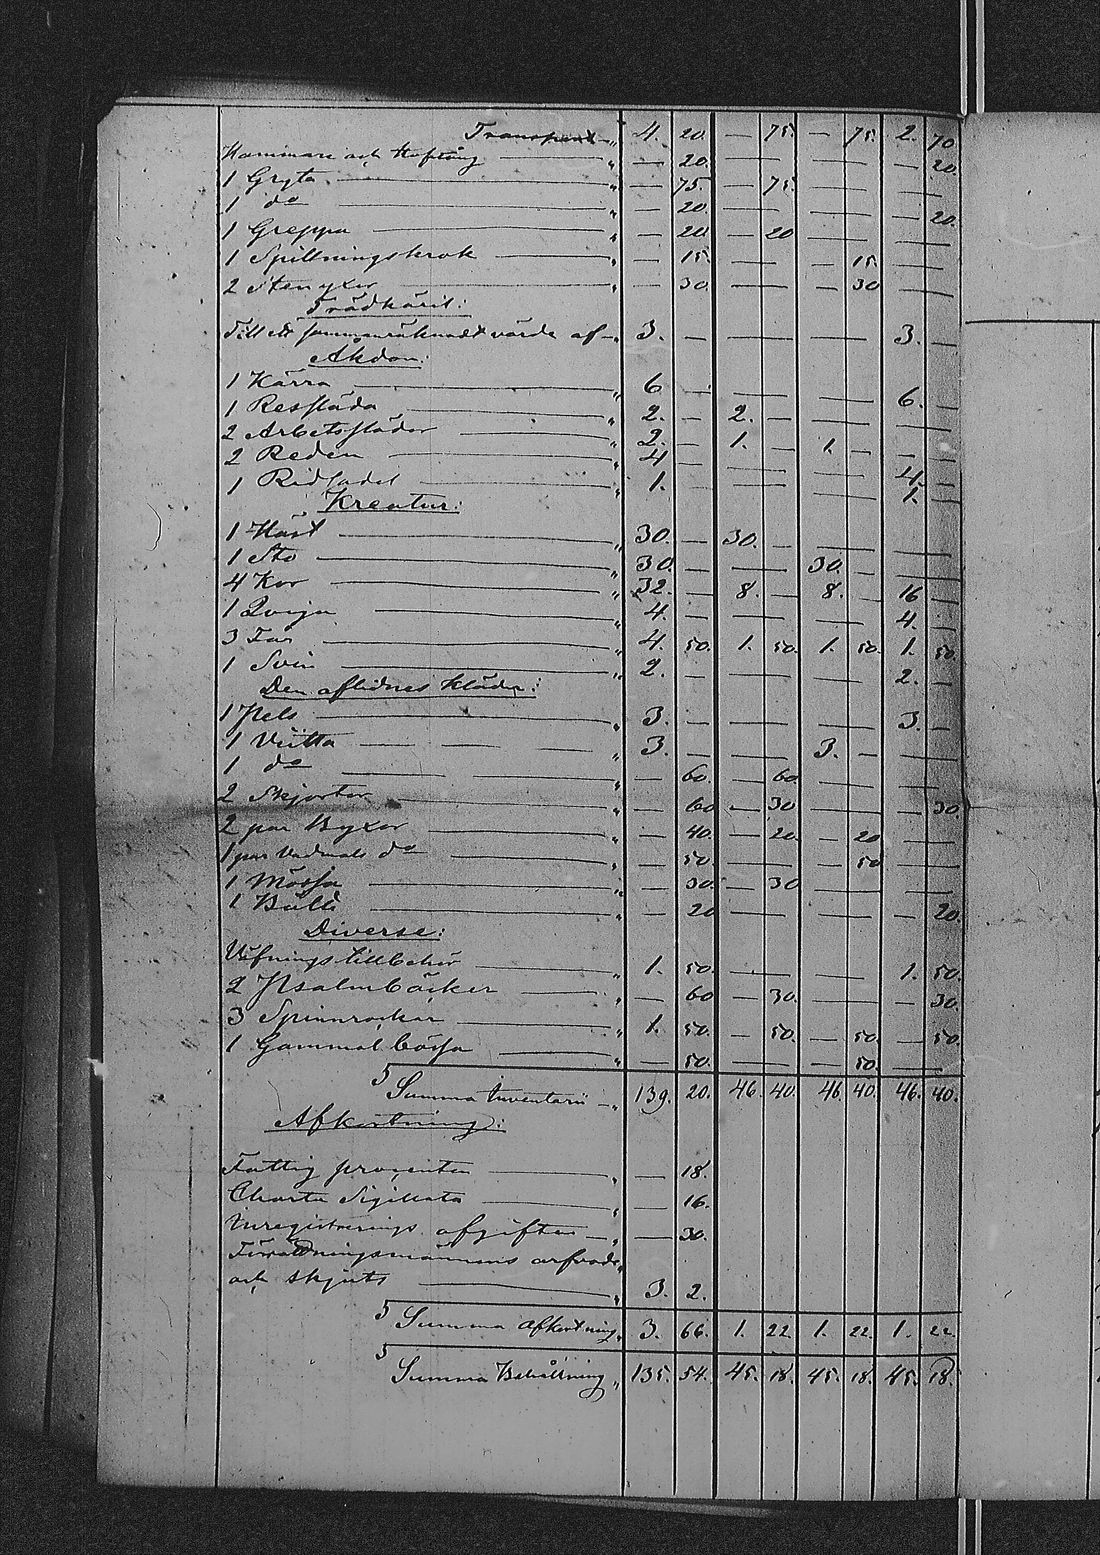 Transport „ 4. 20. — 75. — 75. 2. 70
Hammare och Hoftång „ — 20. — — — 20.
1 Gryta „ — 75. — 75. — —
1 do „ — 20. — — — 20.
1 Greppa „ — 20. — 20 — —
1 Spittningskrok „ — 15. — — 15. —
2 Stenyxor „ — 30. — — 30 —
Trädkäril:
Till ett sammanräknadt värde af „ 3. — — — 3. —
Åkdon:
1 Kärra „ 6 — — — 6. —
1 Ressläda „ 2. — 2. — — —
2 Arbetsslädor „ 2. — 1. — 1. — — —
2 Reden „ 4 — — — 4. —
1 Ridsadel „ 1. — — — 1. —
Kreatur:
1 Häst „ 30. — 30. — — —
1 Sto „ 30. — — 30. — —
4 Kor „ 32. — 8. — 8. — 16 —
1 Qviga „ 4. — — — 4. —
3 Får „ 4. 50. 1. 50. 1. 50. 1. 50.
1 Svin „ 2. — — — 2. —
Den aflidnes kläder:
1 Pels „ 3. — — — 3. —
1 Vuitta „ 3. — — 3. — —
1 do „ — 60. — 60. — —
2 Skjortor „ — 60 — 30. — — 30.
2 par Byxor „ — 40. — 20. — 20 —
1 par Vadmals do „ — 50. — — 50 —
1 Mössa „ — 30. — 30 — —
1 Bälte „ — 20 — — — 20.
Diverse:
Väfnings tillbehör „ 1. 50. — — 1. 50.
2 Psalmböcker „ — 60 — 30. — — 30.
3 Spinnrockar „ 1. 50. — 50. — 50. — 50.
1 Gammal bössa „ — 50. — — 50. —
Summa Inventarii „ 139. 20. 46. 40. 46. 40. 46. 40.
Afkortning:
Fattig procenten „ — 18.
Charta Sigillata „ — 16.
Inregistrerings afgiften „ — 30.
Förrättningsmännens arfvode
och skjuts „ 3. 2.
Summa afkortning „ 3. 66. 1. 22 1. 22. 1. 22
Summa Behållning „ 135. 54. 45. 18. 45. 18. 45. 18.